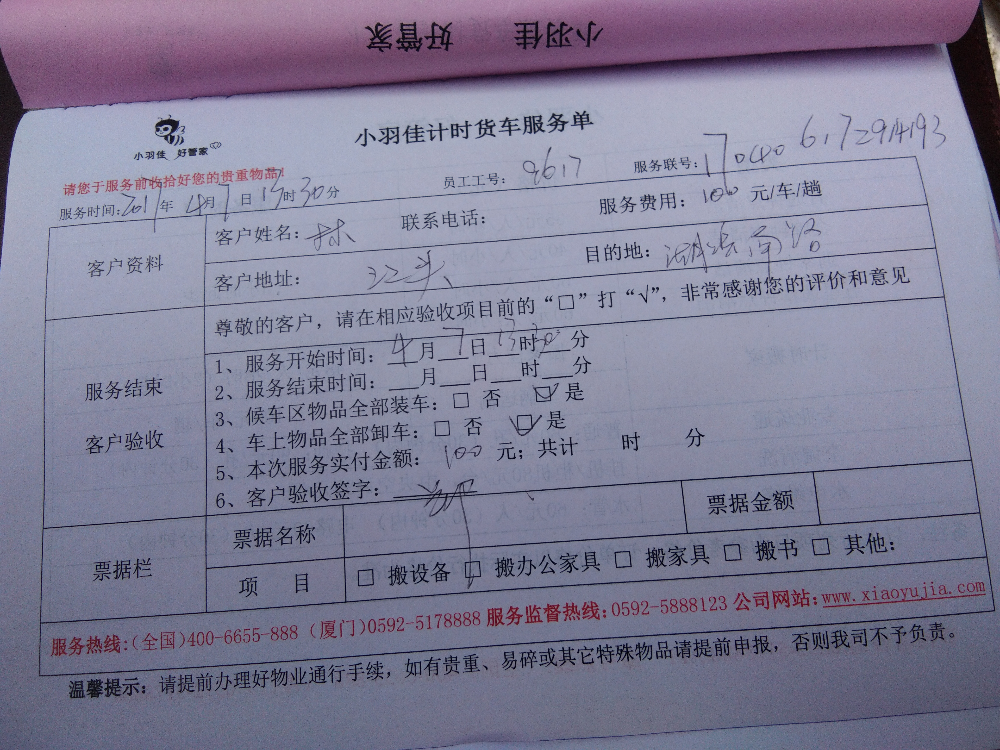 小羽佳 好管家
小羽佳 好管家
小羽佳计时货车服务单
请您于服务前收拾好您的贵重物品!
员工工号: 8617
服务联号: 17040617291493
服务时间: 2017年4月7日13时30分
客户资料
客户姓名: 林 联系电话: 服务费用: 100 元/车/趟
客户地址: 江头 目的地: 湖滨南路
服务结束
客户验收
尊敬的客户，请在相应验收项目前的“□”打“√”，非常感谢您的评价和意见
1、服务开始时间: 4月7日13时30分
2、服务结束时间: ___月___日___时___分
3、候车区物品全部装车: □ 否 ☑ 是
4、车上物品全部卸车: □ 否 ☑ 是
5、本次服务实付金额: 100 元; 共计 时 分
6、客户验收签字:
票据栏
票据名称
票据金额
项 目
□ 搬设备 □ 搬办公家具 □ 搬家具 □ 搬书 □ 其他:
服务热线:(全国)400-6655-888 (厦门)0592-5178888 服务监督热线:0592-5888123 公司网站:www.xiaoyujia.com
温馨提示: 请提前办理好物业通行手续，如有贵重、易碎或其它特殊物品请提前申报，否则我司不予负责。